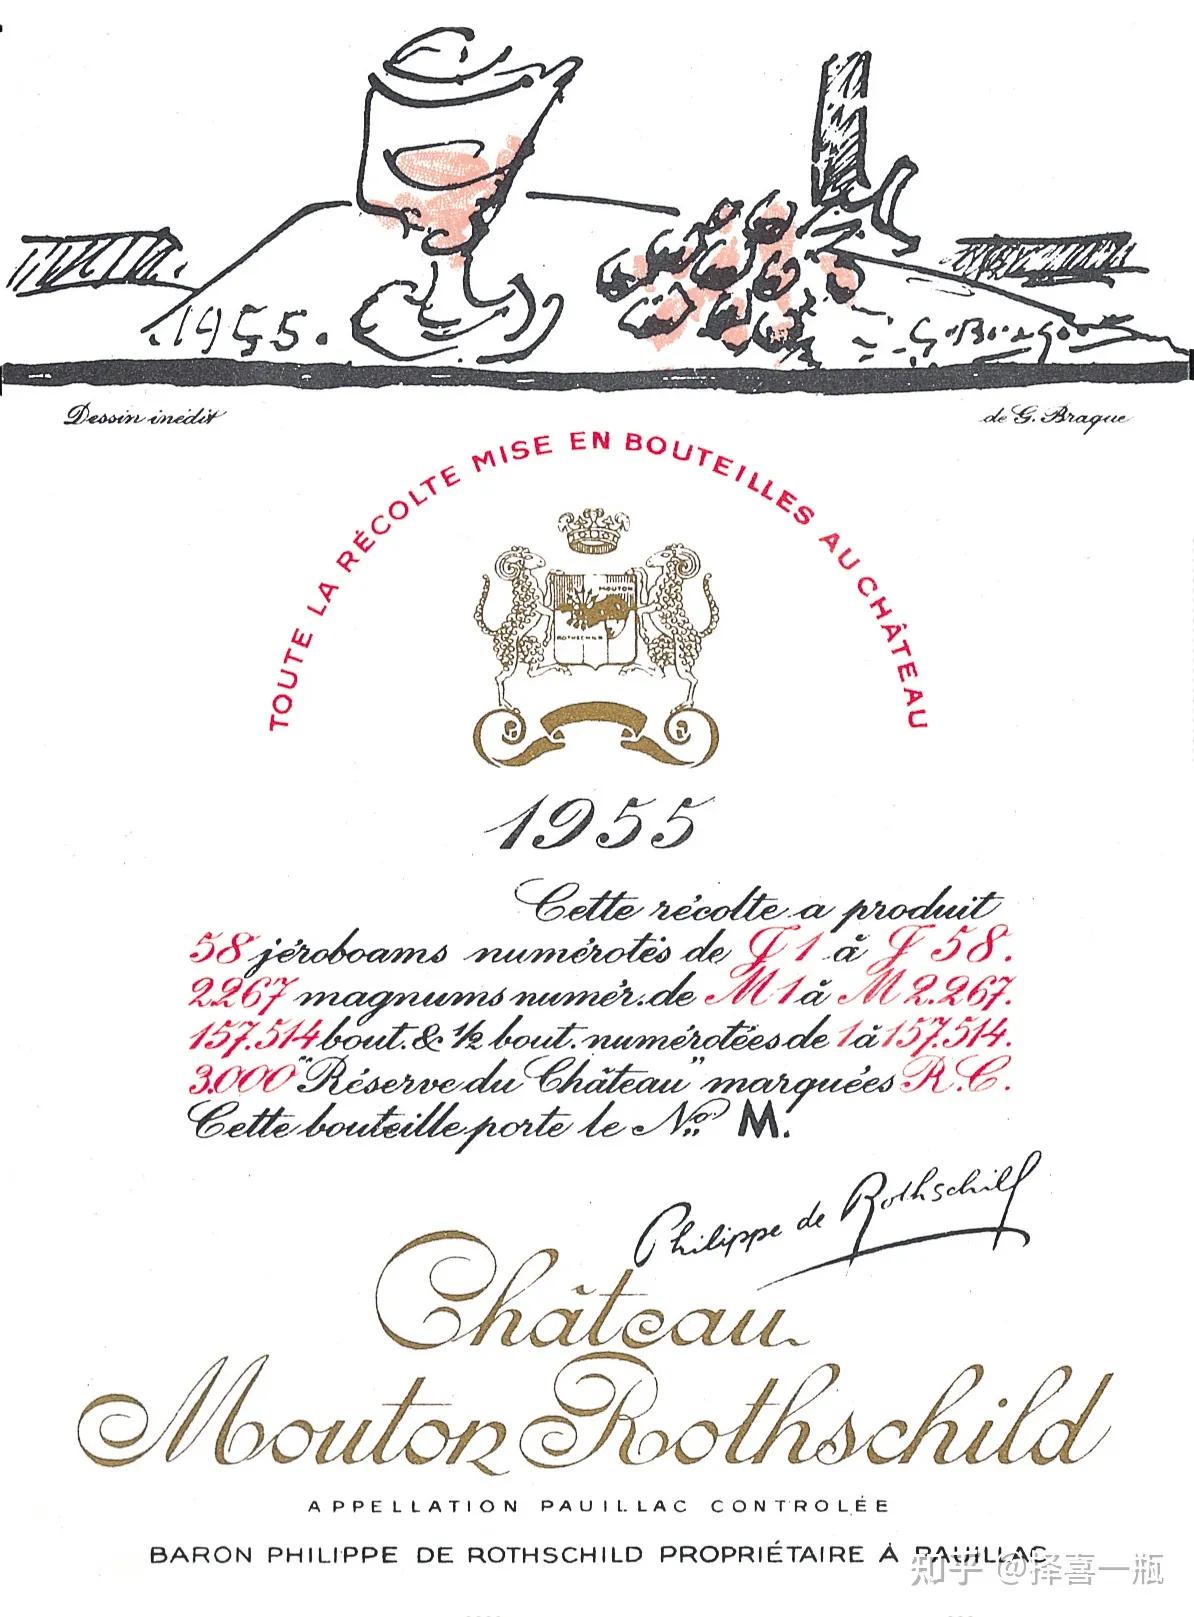 1955.
G. Braque
Dessin inédit
de G. Braque
TOUTE LA RÉCOLTE MISE EN BOUTEILLES AU CHÂTEAU
MOUTON
ROTHSCHILD
1955
Cette récolte a produit
58 jéroboams numérotés de J 1 à J 58.
2267 magnums numér. de M 1 à M 2.267.
157.514 bout. & ½ bout. numérotées de 1 à 157.514.
3.000 "Réserve du Château" marquées R.C.
Cette bouteille porte le No M.
Philippe de Rothschild
Château
Mouton Rothschild
APPELLATION PAUILLAC CONTROLÉE
BARON PHILIPPE DE ROTHSCHILD PROPRIÉTAIRE À PAUILLAC
知乎 @择喜一瓶